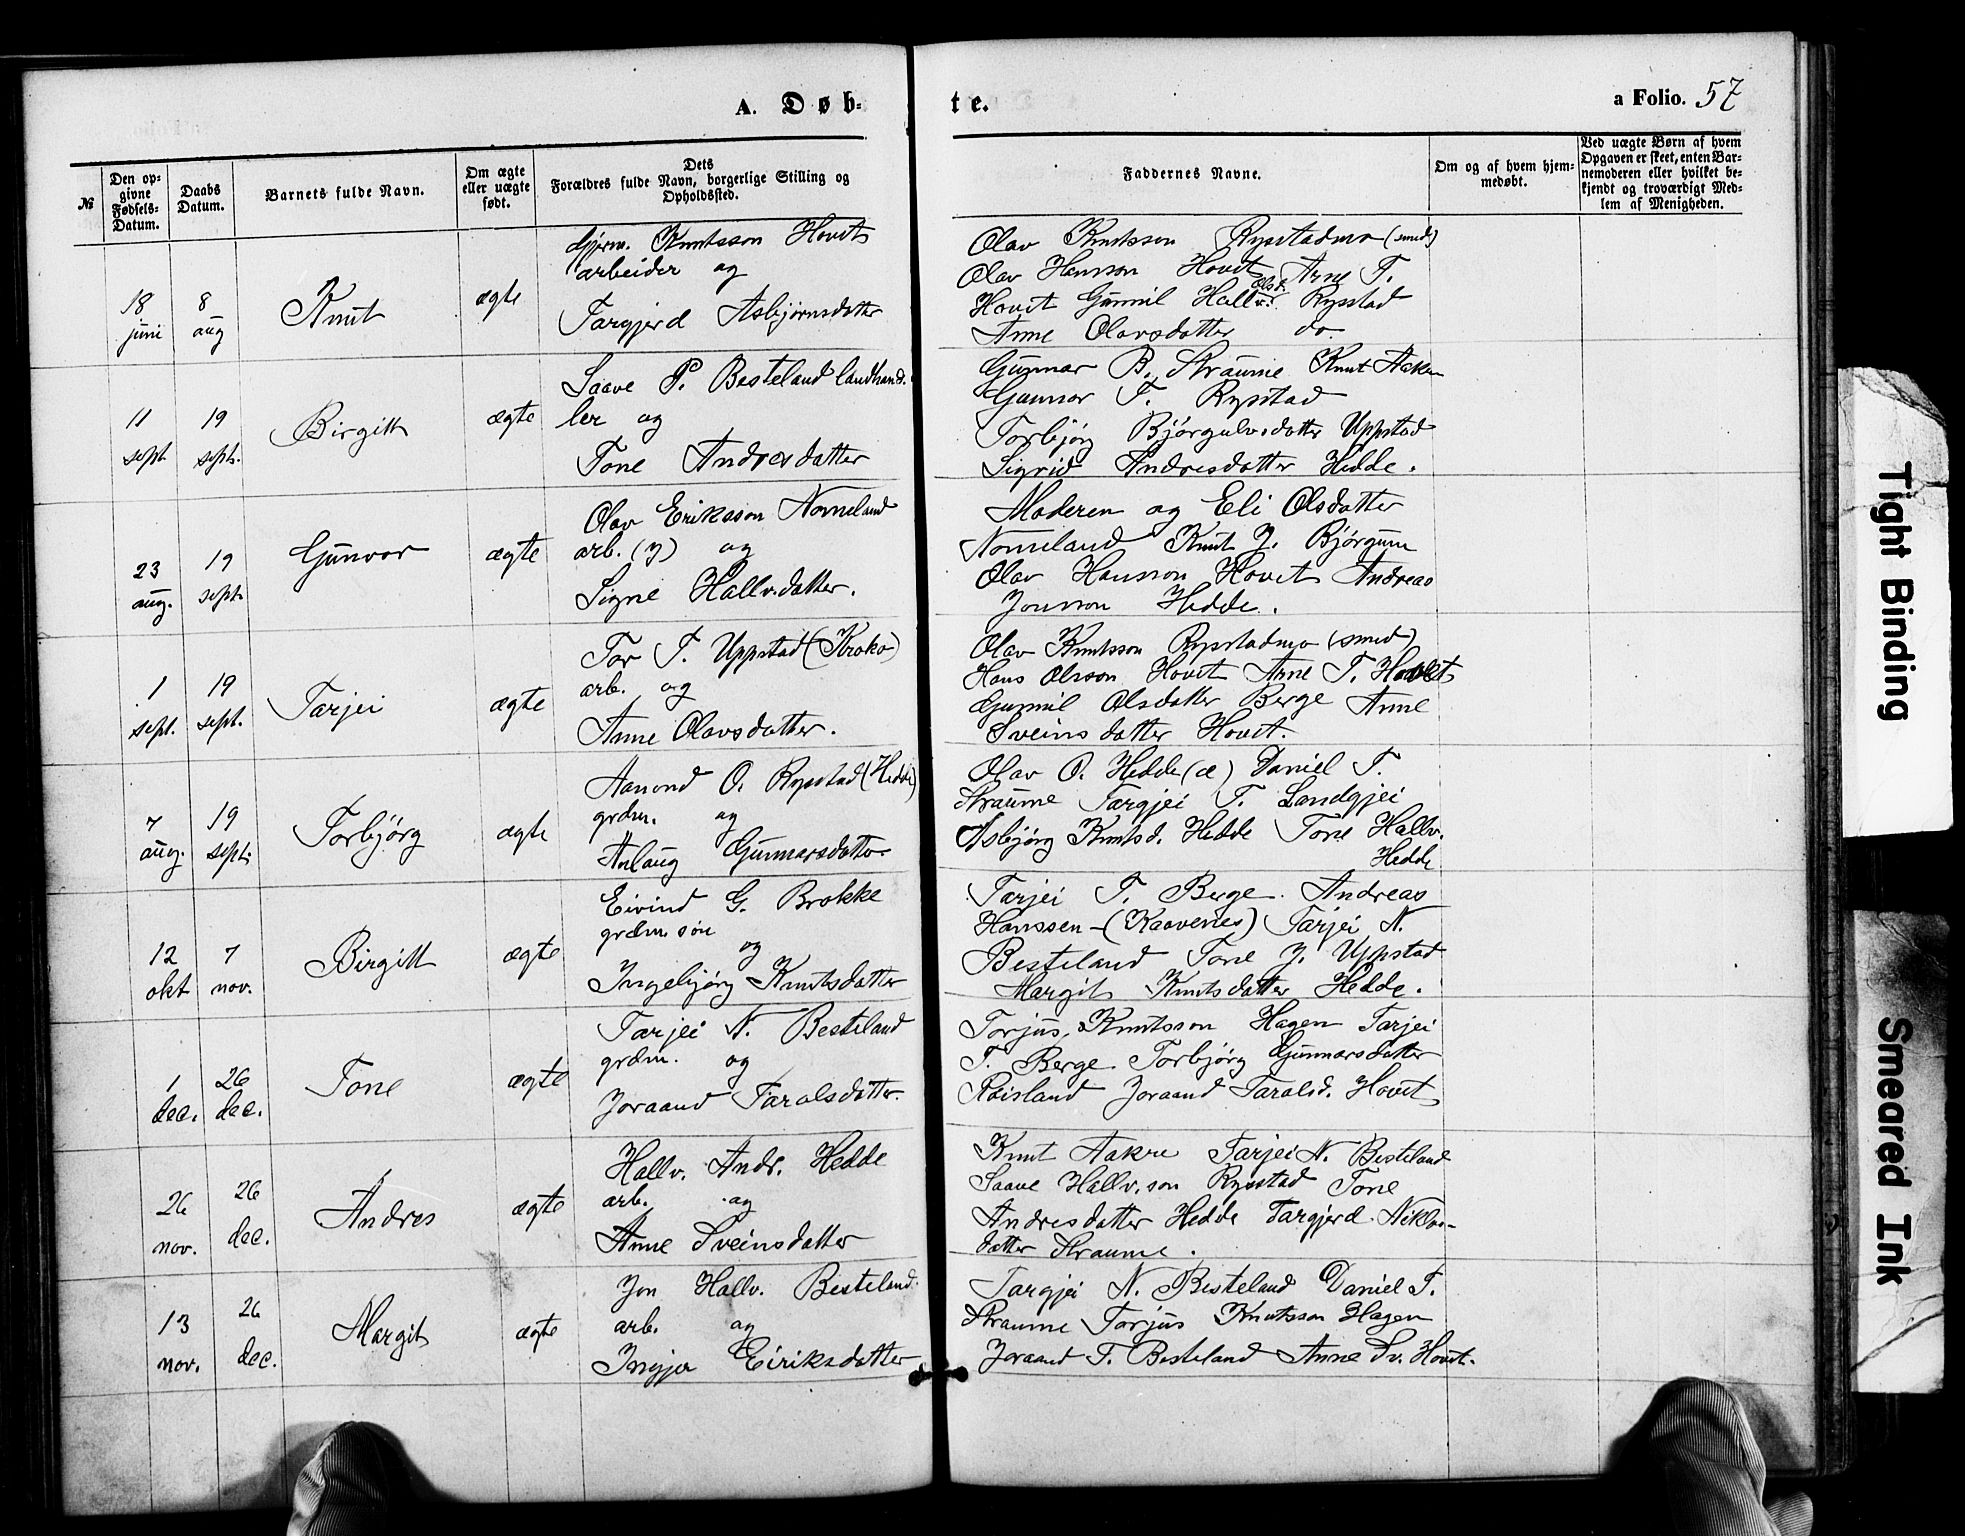 A. Døb-
te.
a Folio. 57
№
Den op-
givne
Fødsels-
Datum.
Daabs
Datum.
Barnets fulde Navn.
Om ægte
eller uægte
født.
Dets
Forældres fulde Navn, borgerlige Stilling og
Opholdssted.
Faddernes Navne.
Om og af hvem hjem-
medøbt.
Ved uægte Børn af hvem
Opgaven er skeet, enten Bar-
nemoderen eller hvilket be-
kjendt og troværdigt Med-
lem af Menigheden.
18
juni
8
aug
Knut
ægte
Gjerm. Knutsson Hovet
arbeider og
Targjerd Asbjørnsdatter
Olav Knutsson Rysstadmo (smed)
Olav Hansson Hovet Arne T.
Hovet Gunnil Hallv. Olsd. Rysstad
Anne Olavsdatter do
11
sept
19
sept.
Birgitt
ægte
Saave P. Besteland landhand-
ler og
Tone Andresdatter
Gunnar B. Straume Knut Aakre
Gunnar T. Rysstad
Torbjørg Bjørgulvsdatter Uppstad
Sigrid Andresdatter Hedde.
23
aug.
19
sept.
Gunvor
ægte
Olav Eriksson Nomeland
arb. (y) og
Signe Hallv.datter.
Moderen og Eli Olsdatter
Nomeland Knut J. Bjørgum
Olav Hansson Hovet Andreas
Jonsson Hedde.
1
sept.
19
sept.
Tarjei
ægte
Tor T. Uppstad (Kroko)
arb. og
Anne Olavsdatter.
Olav Knutsson Rysstadmo (smed)
Hans Olsson Hovet Arne T. Hovet
Gunnil Olsdatter Berge Anne
Sveinsdatter Hovet.
7
aug.
19
sept.
Torbjørg
ægte
Aanond O. Rysstad (Hedde)
grdm. og
Anlaug Gunnarsdatter
Olav O. Hedde (æ) Daniel T.
Straume Targjei T. Landgjei
Asbjørg Knutsd. Hedde Tone Hallv.
Hedde
12
okt
7
nov.
Birgitt
ægte
Eivind G. Brokke
grdm. søn
og
Ingebjørg Knutsdatter
Tarjei T. Berge. Andreas
Hanssen - (Kaavenes) Tarjei N.
Besteland Tone J. Uppstad
Margit Knutsdatter Hedde.
1
dec.
26
dec.
Tone
ægte
Tarjei N. Besteland
grdm. og
Joraand Taralsdatter.
Torjus Knutsson Hagen Tarjei
T. Berge Torbjørg Gunnarsdatter
Røisland Joraand Taralsd. Hovet
26
nov.
26
dec.
Andres
ægte
Hallv. Andr. Hedde
arb. og
Anne Sveinsdatter
Knut Aakre Tarjei N. Besteland
Saave Hallv.son Rysstad Tone
Andresdatter Hedde Targjerd
datter Straume.
13
nov.
26
dec.
Margit
ægte
Jon Hallv. Besteland
arb. og
Ingjer Eiriksdatter
Targjei N. Besteland Daniel T.
Straume Torjus Knutsson Hagen
Joraand T. Besteland Anne Sv. Hovet.
Tight Binding
Smeared Ink